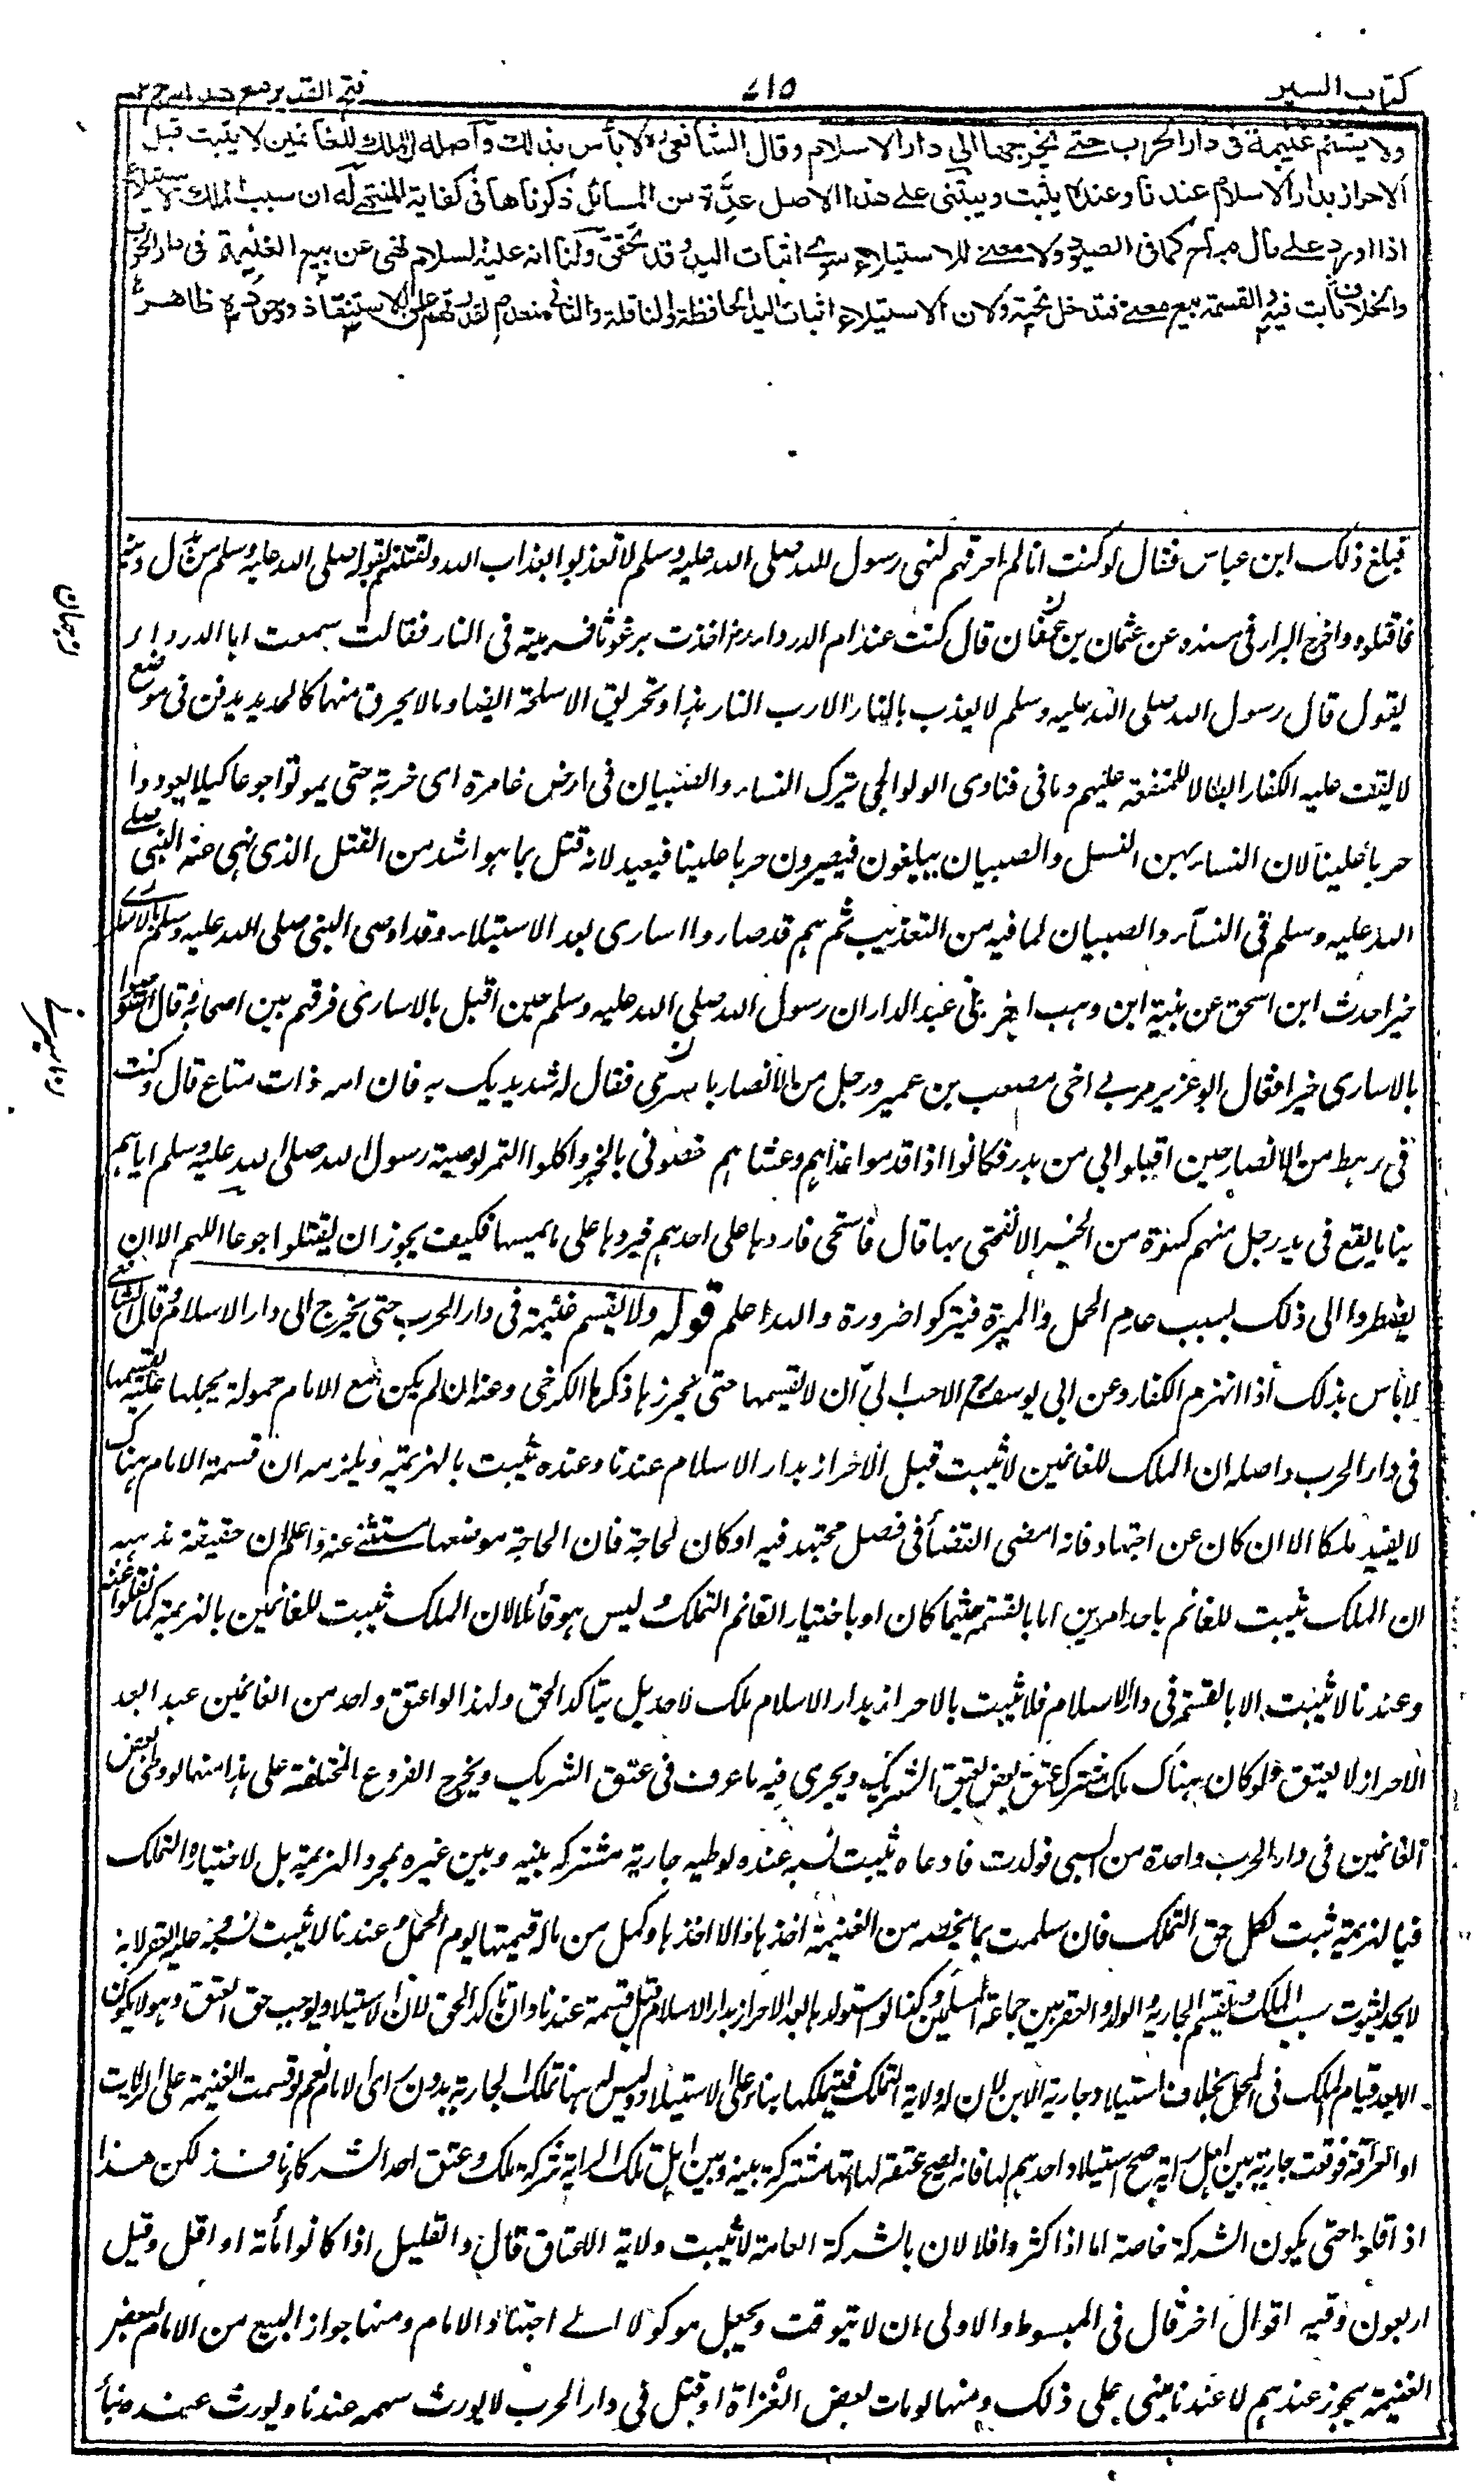 كتاب السير ٧١٥ فتح القدير مع هدايه ج ٢
ولا يقسم غنيمة فى دار الحرب حتے يخرجها الى دار الاسلام وقال الشافعىؒ لا بأس بذلك وآصله ان الملك للغانمين لا يثبت قبل
الاحراز بدار الاسلام عندنا وعنده يثبت ويبتنى على هذا الاصل عدّة من المسائل ذكرناها فى كفاية المنتهےٰ له ان سبب الملك الاستيلاء
اذا اورد على مال مباح كما فى الصيود ولا معنے للاستيلاء سوے اثبات اليد وقد تحقق ولنا انه عليه السلام نهى عن بيع الغنيمة فى دار الحرب
والخلاف ثابت فيه والقسمة بيع معنے فتدخل تحته ولان الاستيلاء اثبات اليد الحافظة والناقلة والثانى منعدم لقدرتهم على الاستنقاذ ووجوده ظاهرا
فبلغ ذلك ابن عباس فقال لو كنت انا لم احرقهم لنهى رسول الله صلى الله عليه وسلم لا تعذبوا بعذاب الله ولقتلتهم لقوله صلى الله عليه وسلم من بدل دينه
فاقتلوه واخرج البزار فى مسنده عن عثمان بن حيان قال كنت عند ام الدرداء رض اخذت برغوثا فرميته فى النار فقالت سمعت ابا الدرداء
يقول قال رسول الله صلى الله عليه وسلم لا يعذب بالنار الا رب النار هذا وتحريق الاسلحة ايضا وما لا يحرق منها كالحديد يدفن فى موضع
لا يقف عليه الكفار ابطالا للمنفعة عليهم وما فى فتاوى الولوالجى تترك النساء والصبيان فى ارض غامرة اى خربة حتى يموتوا جوعا كيلا يعودوا
حربا علينا لان النساء بهن النسل والصبيان يبلغون فيصيرون حربا علينا فبعيد لانه قتل بما هو اشد من القتل الذى نهى عنه النبى صلى
الله عليه وسلم فى النساء والصبيان لما فيه من التعذيب ثم هم قد صاروا اسارى بعد الاستيلاء وقد اوصى النبى صلى الله عليه وسلم بالاسارى
خيرا حدث ابن اسحق عن نبيه ابن وهب اخى بنى عبد الدار ان رسول الله صلى الله عليه وسلم حين اقبل بالاسارى فرقهم بين اصحابه وقال استوصوا
بالاسارى خيرا فقال ابو عزيز مر بى اخى مصعب بن عمير ورجل من الانصار ياسرنى فقال له شد يديك به فان امه ذات متاع قال وكنت
فى رهط من الانصار حين اقبلوا بى من بدر فكانوا اذا قدموا غذاهم وعشاهم خصونى بالخبز واكلوا التمر لوصية رسول الله صلى الله عليه وسلم اياهم
بنا ما يقع فى يد رجل منهم كسرة من الخبز الا نفحنى بها قال فاستحى فاردها على احدهم فيردها على ما يمسها فكيف يجوز ان يقتلوا جوعا اللهم الا ان
يضطروا الى ذلك بسبب عدم الحمل والميرة فيتركوا ضرورة والله اعلم قوله ولا يقسم غنيمة فى دار الحرب حتى يخرج الى دار الاسلام وقال الشافعى
لا بأس بذلك اذا انهزم الكفار وعن ابى يوسف الاحب الىّ ان لا يقسمها حتى يحرزها ذكرها الكرخى وعنه ان لم يكن مع الامام حمولة يحملها عليه يقسمها
فى دار الحرب واصله ان الملك للغانمين لا يثبت قبل الاحراز بدار الاسلام عندنا وعنده يثبت بالهزيمة ويلزمه ان قسمة الامام هناك
لا يفيد ملكا الا ان كان عن اجتهاد فانه امضى القضاء فى فصل مجتهد فيه او كان لحاجة فان الحاجة موضعها مستثنے عنه واعلم ان حقيقة مذهبه
ان الملك يثبت للغانم باحد امرين اما بالقسمة حيثما كان او باختيار الغانم التملك ليس هو قائلا ان الملك يثبت للغانمين بالهزيمة كما نقلوا عنه
وعندنا لا يثبت الا بالقسمة فى دار الاسلام فلا يثبت بالاحراز بدار الاسلام ملك لاحد بل يتأكد الحق ولهذا لو اعتق واحد من الغانمين عبدا بعد
الاحراز لا يعتق ولو كان هناك ملك مشترك عتق بعتق الشريك ويجرى فيه ما عرف فى عتق الشريك ويخرج الفروع المختلفة على هذا منها لو وطى بعض
الغانمين فى دار الحرب واحدة من السبى فولدت فادعاه يثبت نسبه عنده لوطيه جارية مشتركة بينه وبين غيره بمجرد الهزيمة بل لاختياره التملك
فبالهزيمة ثبت لكل حق التملك فان سلمت بما يخصه من الغنيمة اخذها والا اخذها وكمل من ماله قيمتها يوم الحمل وعندنا لا يثبت نسبه وعليه العقر لانه
لا يحد لثبوت سبب الملك ويقسم الجارية والولد والعقر بين جماعة المسلمين وكذا لو استولدها بعد الاحراز بدار الاسلام قبل قسمة عندنا وان تأكد الحق لان الاستيلاد يوجب حق العتق وهو لا يكون
الا بعد قيام الملك فى المحل بخلاف استيلاد جارية الابن لان له ولاية التملك فيتملكها بناء على الاستيلاد وليس له هنا تملك الجارية بدون رأى الامام نعم لو قسمت الغنيمة على الرايات
او العرافة فوقعت جارية بين اهل راية صح استيلاد احدهم لها فانه يصح عتقه لها لانها مشتركة بينه وبين اهل تلك الراية شركة ملك وعتق احد الشركاء نافذ لكن هذا
اذا قلوا حتى يكون الشركة خاصة اما اذا كثروا فلا لان بالشركة العامة لا يثبت ولاية الاعتاق قال والقليل اذا كانوا مأة او اقل وقيل
اربعون وفيه اقوال اخر قال فى المبسوط والاولى ان لا يوقت ويجعل موكولا الے اجتهاد الامام ومنها جواز البيع من الامام لبعض
الغنيمة يجوز عندهم لا عندنا يبنى على ذلك ومنها لو مات بعض الغزاة او قتل فى دار الحرب لا يورث سهمه عندنا ويورث عنده بناء